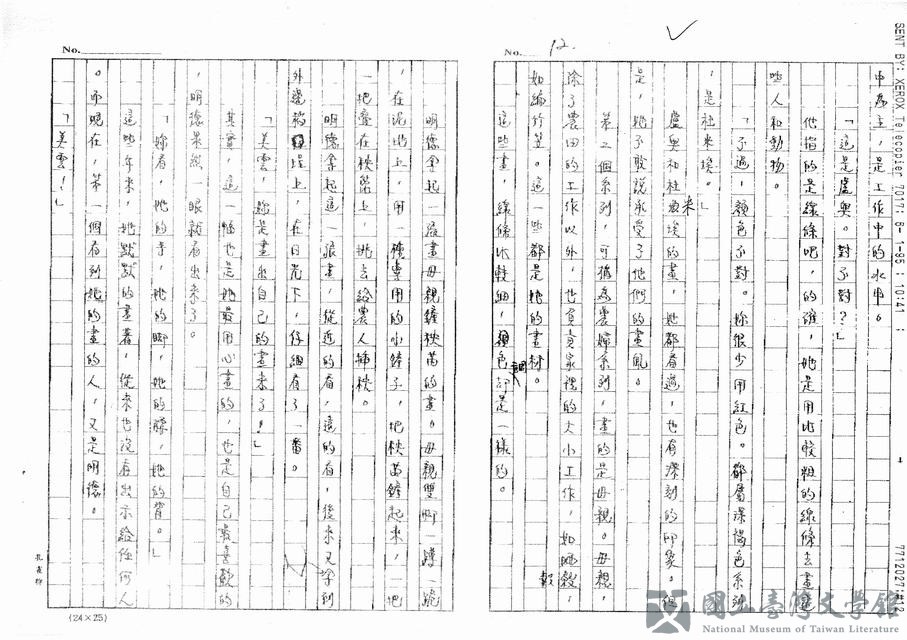 SENT BY: XEROX Telecopier 7017; 6- 1-95 ; 10:41 ;
7712027;#12
No. 12.
中為主，是工作中的水牛。
「這是盧奧。對不對？」
他指的是線條吧，的確，她是用比較粗的線條去畫這
些人和動物。
「不過，顏色不對。妳很少用紅色。都屬深褐色系列
，是杜米埃。」
盧奧和杜米埃的畫，她都看過，也有深刻的印象。但
是，她不敢說承受了他們的畫風。
第二個系列，可稱為農婦系列，畫的是母親。母親，
除了農田的工作以外，也負責家裡的大小工作，如曬穀，
如編竹笠。這一些都是她的畫材。
這些畫，線條比較細，色調卻是一樣的。
No.
明德拿起一張畫母親鏟秧苗的畫。母親雙腳一蹲一跪
，在泥地上，用一種專用的小鏟子，把秧苗鏟起來，一把
一把疊在秧架上，挑去給農人插秧。
明德拿起這一張畫，從近的看，遠的看，後來又拿到
外邊稻埕上，在日光下，仔細看了一番。
「美雲，妳是畫出自己的畫來了！」
其實，這一幅也是她最用心畫的，也是自己最喜歡的
，明德果然一眼就看出來了。
「妳看，她的手，她的腳，她的膝，她的背。」
這些年來，她默默的畫著，從來也沒有出示給任何人
。而現在，第一個看到她的畫的人，又是明德。
「美雲！」
(24×25)
國立臺灣文學館
National Museum of Taiwan Literature